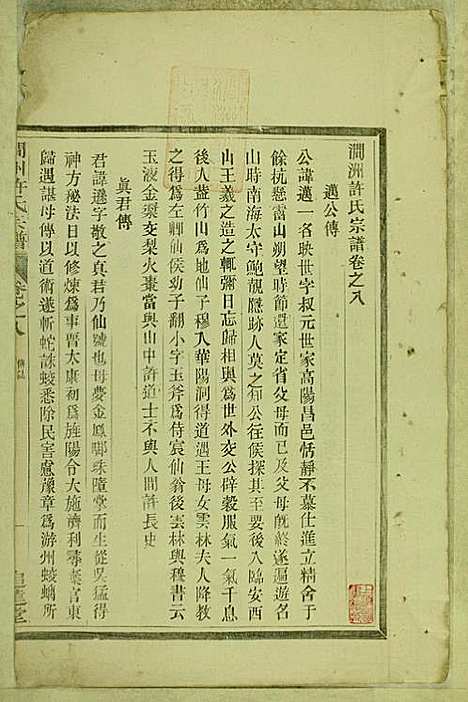 澗洲許氏宗譜卷之八
邁公傳
公諱邁一名映世字叔元世家高陽昌邑恬靜不慕仕進立精舍于
餘抗懸霤山朔望時節還家定省父母而已及父母旣終遂遍遊名
山時南海太守鮑靚隱跡人莫之知公徃候探其至要後入臨安西
山王羲之造之輒彌日忘歸相與爲世外交公辟穀服氣一氣千息
後人葢竹山爲地仙子穆入華陽洞得道遇王母女雲林夫人降敎
之得爲左卿仙侯幼子翽小字玉斧爲侍宸仙翁後雲林與穆書云
玉液金漿交梨火棗當與山中許道士不與人間許長史
眞君傳
君諱遜字敬之眞君乃仙號也母夢金鳳啣珠墮掌而生從吳猛得
神方秘法日以修煉爲事晋太康初爲旌陽令大施濟利尋棄官東
歸遇諶母傳以道術遂斬蛇誅蛟悉除民害慮豫章爲游州蛟螭所
澗州許氏宗譜
卷之八
傳誌
一